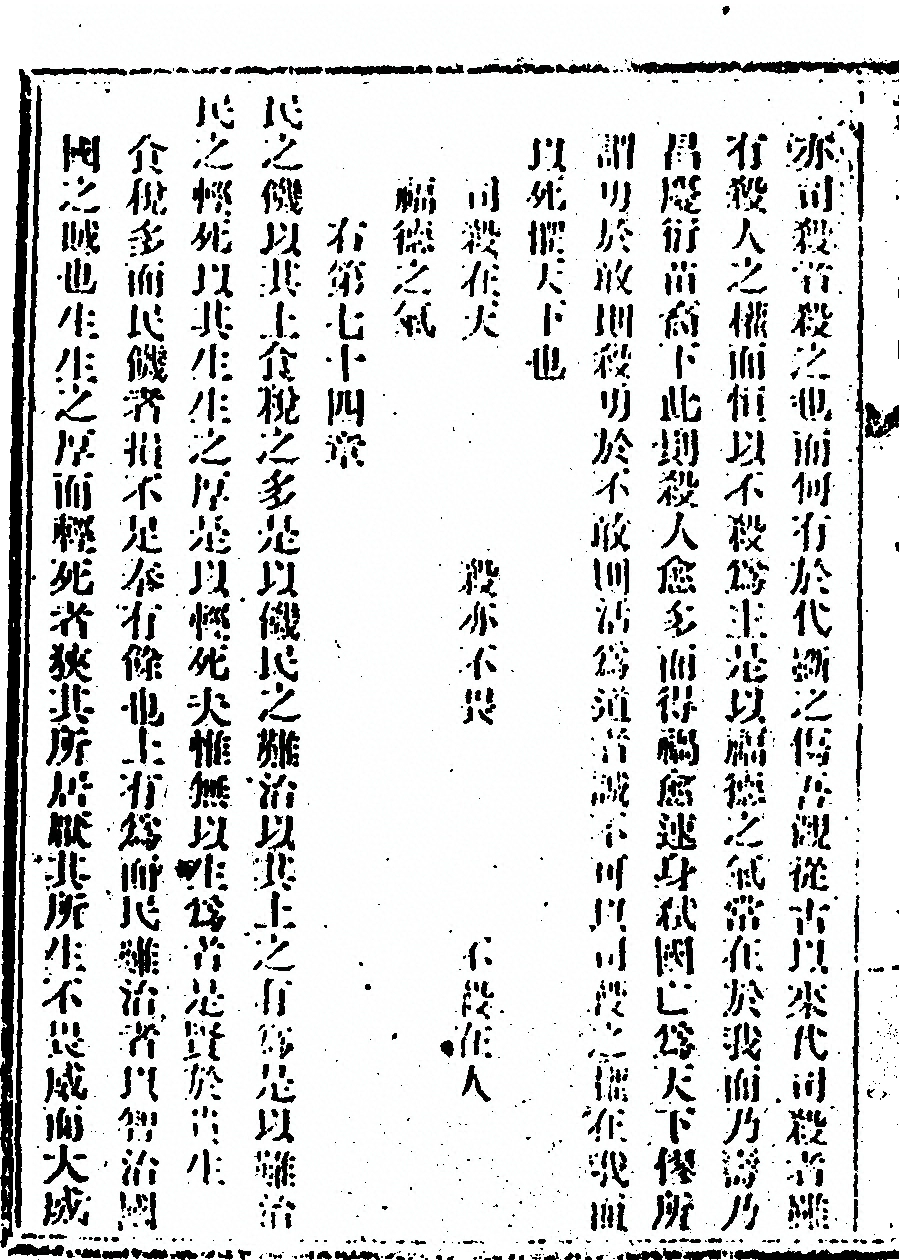 亦司殺者殺之也而何有於代斲之傷吾觀從古以來代司殺者雖
有殺人之權而恒以不殺爲主是以福德之氣常在於我而乃壽乃
昌慶衍苗裔下此則殺人愈多而得禍愈速身弒國亡爲天下僇所
謂勇於敢則殺勇於不敢則活爲道者誠不可以司殺之權在我而
以死懼天下也
司殺在天 殺亦不畏 不殺在人
福德之氣
右第七十四章
民之饑以其上食稅之多是以饑民之難治以其上之有爲是以難治
民之輕死以其生生之厚是以輕死夫惟無以生爲者是賢於貴生
食稅多而民饑者損不足奉有餘也上有爲而民難治者以智治國
國之賊也生生之厚而輕死者狹其所居厭其所生不畏威而大威